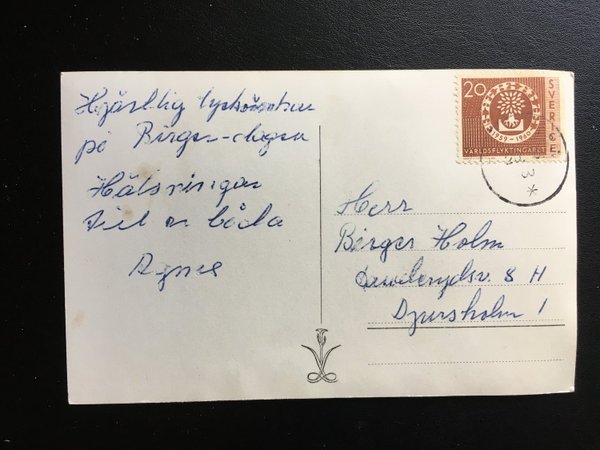 Hjärtlig lyckönskan
på Birger-dagen
Hälsningar
till er båda
Agnes
20
SVERIGE
1959-1960
VÄRLDSFLYKTINGÅRET
Herr
Birger Holm
8 H
Djursholm 1